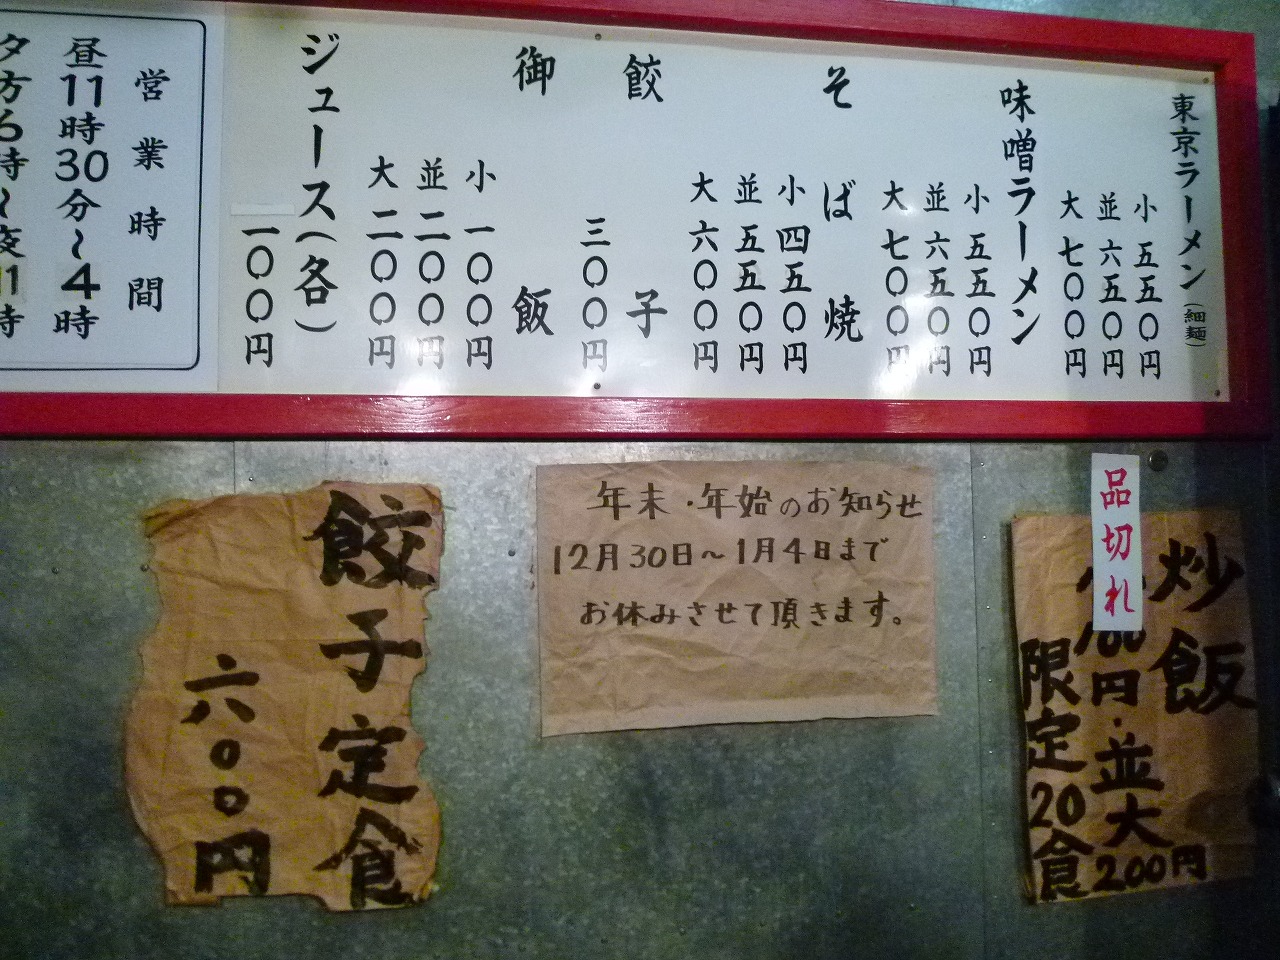 東京ラーメン(細麺)
小 五五〇円
並 六五〇円
大 七〇〇円
味噌ラーメン
小 五五〇円
並 六五〇円
大 七〇〇円
そば焼
小 四五〇円
並 五五〇円
大 六〇〇円
餃子
三〇〇円
御飯
小 一〇〇円
並 二〇〇円
大 二〇〇円
ジュース(各)
一〇〇円
営業時間
昼11時30分~4時
夕方6時~夜11時
餃子定食
六〇〇円
年末・年始のお知らせ
12月30日~1月4日まで
お休みさせて頂きます。
品切れ
炒飯
小100円・並大200円
限定20食